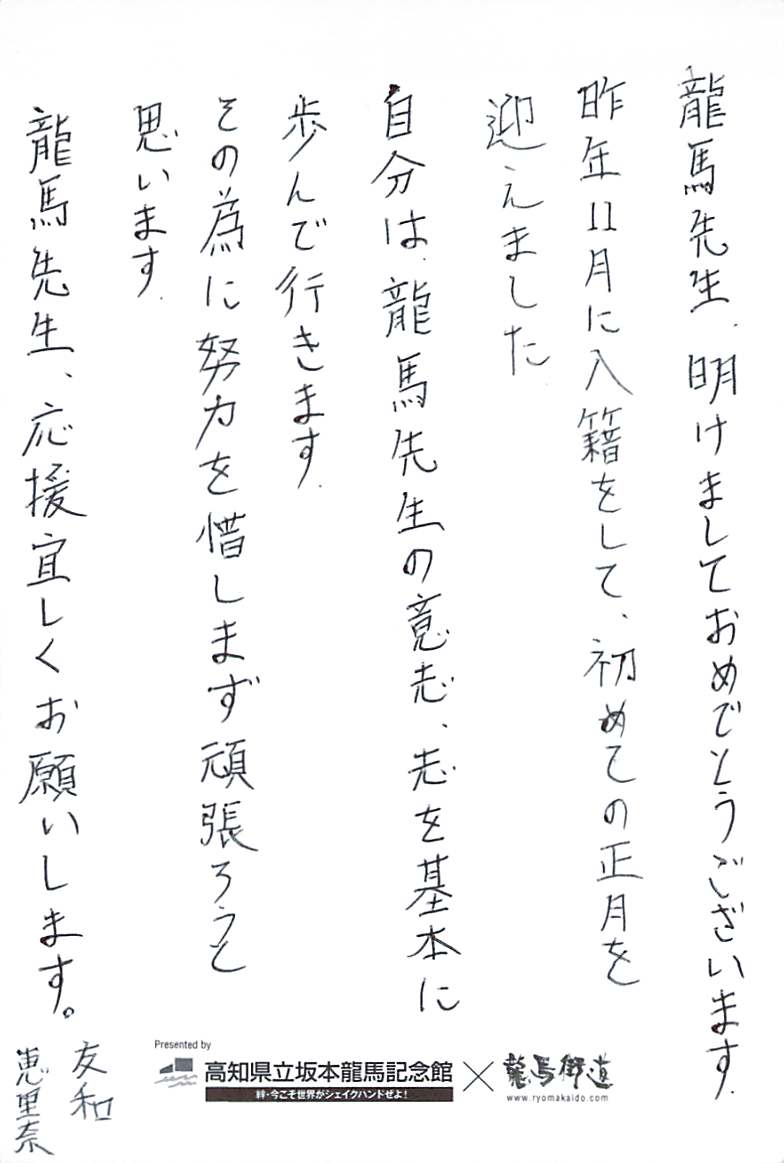 龍馬先生、明けましておめでとうございます。
昨年11月に入籍をして、初めての正月を
迎えました
自分は、龍馬先生の意志、志を基本に
歩んで行きます。
その為に努力を惜しまず頑張ろうと
思います。
龍馬先生、応援宜しくお願いします。
友和
恵里奈
Presented by
高知県立坂本龍馬記念館
絆・今こそ世界がシェイクハンドせよ!
×
龍馬街道
www.ryomakaido.com